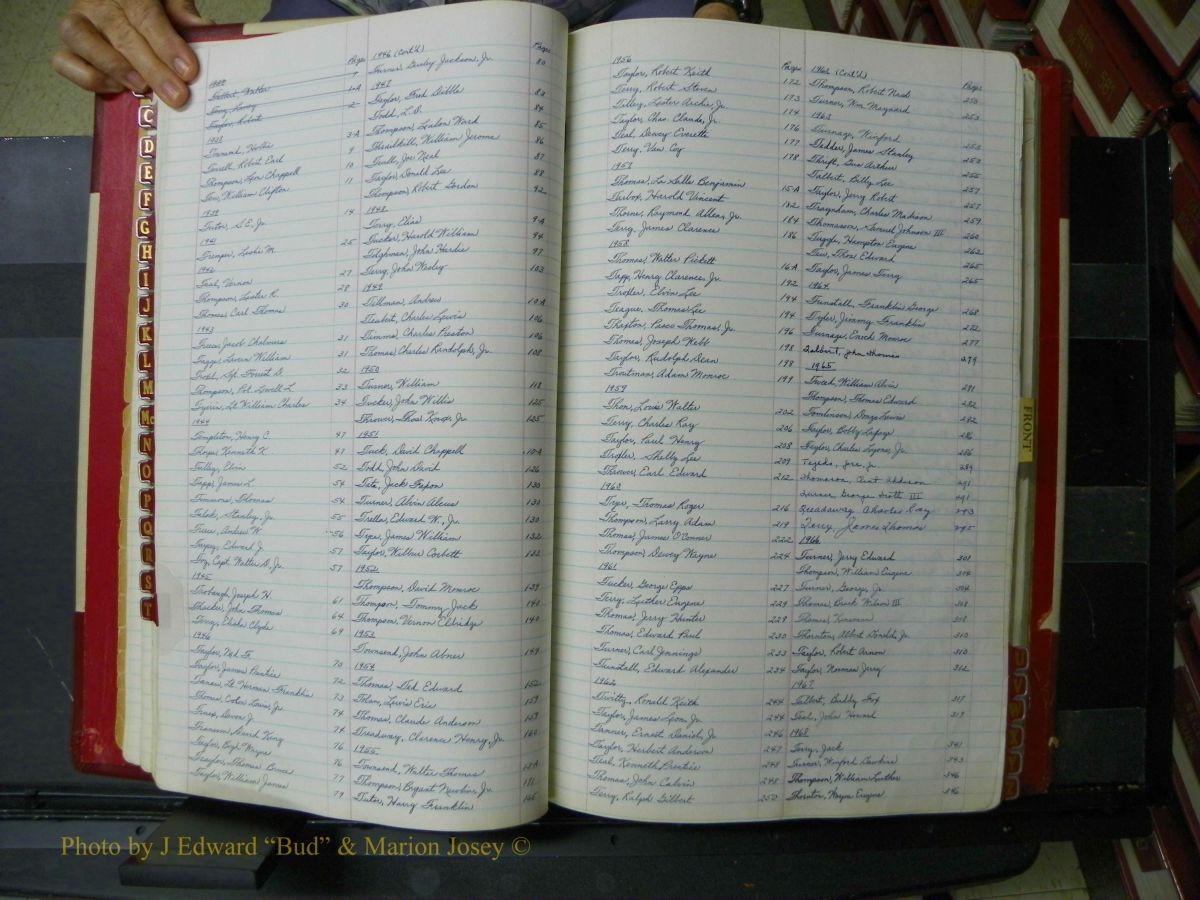 C
D
E
F
G
H
I
J
K
L
M
Mc
N
O
P
Q
R
S
T
Page
Talbert, Walter
Terry, Robert Earl
Thompson, Lon Chappell 10
Tew, William Clifton 11
1939
Tutor, S.E. Jr. 14
1941
Tremper, Leslie M. 25
1942
Teal, Vernon 27
Thompson, Lester R. 28
Thomas, Carl Thomas 30
1943
Trece, Jacob Chalmers 31
Tagge, Loren William 31
32
Thompson, Pvt. Lowell L. 33
Tyson, Lt William Charles 34
1944
Templeton, Henry C. 47
Thorpe, Kenneth K. 47
Tulley, Elvin 52
Tapp, James L. 54
Timmons, Thomas 54
Talek, Stanley, Jr. 55
56
Tarpey, Edward J. 57
Toy, Capt. Walter D. Jr. 57
1945
Trobaugh, Joseph H. 61
Thacker, John Thomas 64
Terry, Elisha Clyde 69
1946
Taylor, Ned Fr.
Taylor, James Parkie 70
Tanner, Lt. Herman Franklin 72
73
74
Transou, David King 74
76
Traylor, Thomas Bruce 76
Taylor, William James 77
79
1946 (Cont'd) Page
Turner, Gurley Jackson, Jr. 80
1947
Taylor, Fred Dibble 83
Todd, L.D. 84
Thompson, Linlon Ward 85
Threailkill, William Jerome 86
Truell, Joe Neal 87
Taylor, Donald Lee 88
Thompson, Robert Gordon 92
1948
Terry, Elias 9-A
Tucker, Harold William 94
Tilghman, John Hardie 97
Terry, John Wesley 103
1949
Tillman, Andrew 10-A
Teubert, Charles Lewis 106
Timms, Charles Preston 106
Thomas, Charles Randolph, Jr. 108
1950
Turner, William 118
Tucker, John Willis 125
Thrower, Thos Knox, Jr. 125
1951
Tuck, David Chappell 10-A
Todd, John David 126
Tate, Jack Fepon 130
Turner, Alvin Alcus 130
Trella, Edward W., Jr. 130
Dyer, James William 132
Taylor, Wilbur Corbett 132
1952
Thompson, David Monroe 139
Thompson, Tommy Jack 140
Thompson, Vernon Eldridge 140
1953
Townsend, John Abner 149
1954
Thomas, Ded Edward 152
Tolan, Lewis Eric 159
Thomas, Claude Anderson 159
Treadway, Clarence Henry, Jr. 160
1955
Townsend, Walter Thomas 13A
Thompson, Bryant Newbern, Jr. 161
Tutor, Harry Franklin 165
1956 Page
Taylor, Robert Keith 172
Terry, Robert Steven 173
Tilley, Lester Archie, Jr. 174
Taylor, Chas. Claude, Jr. 176
Teal, Dewey Everette 177
Terry, Van Coy 178
1957
Thomas, La Salle Benjamin 15-A
Tarbox, Harold Vincent 182
Thorne, Raymond Albens, Jr. 184
Terry, James Clarence 186
1958
Thomas, Walter Pickett 16A
Tapp, Henry Clarence, Jr. 192
Troxler, Elvin Lee 194
Teague, Thomas Lee 194
Thrixton, Pasco Thomas, Jr. 196
Thomas, Joseph Webb 198
Taylor, Rudolph Dean 198
Troutman, Adam Monroe 199
1959
Thon, Louis Walter 202
Terry, Charles Ray 206
Taylor, Paul Henry 208
Troxler, Shelly Lee 209
Thrower, Earl Edward 212
1960
Trye, Thomas Roger 216
Thompson, Larry Adam 219
Thomas, James O'Conner 222
Thompson, Dewey Wayne 224
1961
Tucker, George Epps 227
Terry, Luther Eugene 229
Thomas, Jerry Hunter 229
Thomas, Edward Paul 230
Turner, Carl Jennings 233
Tunstall, Edward Alexander 234
1962
Twitty, Ronald Keith 244
Taylor, James Leon, Jr. 244
Tanner, Ernest Daniel, Jr. 246
Taylor, Herbert Anderson 247
Teal, Kenneth Prentice 248
Thomas, John Calvin 248
Terry, Ralph Gilbert 250
1962 (Cont'd) Page
Thompson, Robert Nash 250
Turner, Wm. Maynard 253
1963
Turnage, Winford 253
Tedder, James Stanley 253
Thrift, Gus Arthur 255
Talbert, Billy Lee 257
Taylor, Jerry Robert 257
Traynham, Charles Madison 259
Thomasson, Samuel Johnson III 260
Tuggle, Hampton Eugene 262
Tew, Thos. Edward 265
Taylor, James Terry 265
1964
Tunstall, Franklin George 268
Tyler, Jimmy Franklin 272
Turnage, Enoch Monroe 277
Talbert, John Thomas 279
1965
Tweed, William Alvin 281
Thompson, Thomas Edward 282
Tomlinson, Donzo Lewis 282
Taylor, Bobby Lafaye 286
Taylor, Charles Lyons, Jr. 286
Tejeda, Jose, Jr. 289
Thomason, Curt Addison 291
Turner, George Scott III 291
Treadaway, Charles Ray 293
Terry, James Thomas 295
1966
Turner, Jerry Edward 301
Thompson, William Eugene 304
Turner, George, Jr. 304
Thomas, Buck Wilson III 308
308
Thornton, Albert Donald, Jr. 310
Taylor, Robert Arnon 310
Taylor, Norman Jerry 312
1967
Talbert, Buddy Fox 317
Teal, John Howard 319
1968
Terry, Jack 341
Turner, Winford Hawkins 343
Thompson, William Luther 346
Thornton, Wayne Eugene 346
FRONT
Photo by J Edward “Bud” & Marion Josey ©